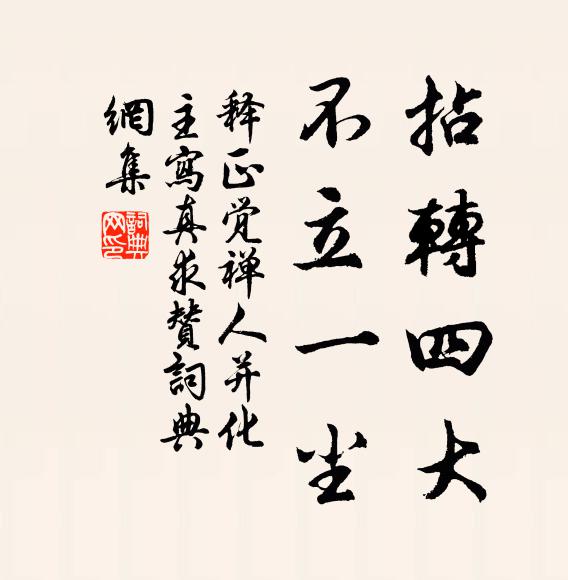 拈轉四大
不立一尘
释正觉禅人并化
主寫真求贊詞典
網集
詞典
网印